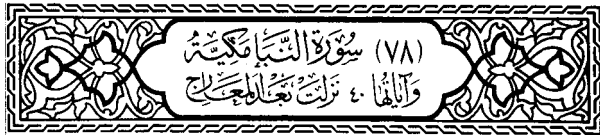 (٧٨) سُورَةُ النَّبَإِ مَكِّيَّة
وَآيَاتُهَا ٤٠ نَزَلَتْ بَعْدَ الْمَعَارِجِ